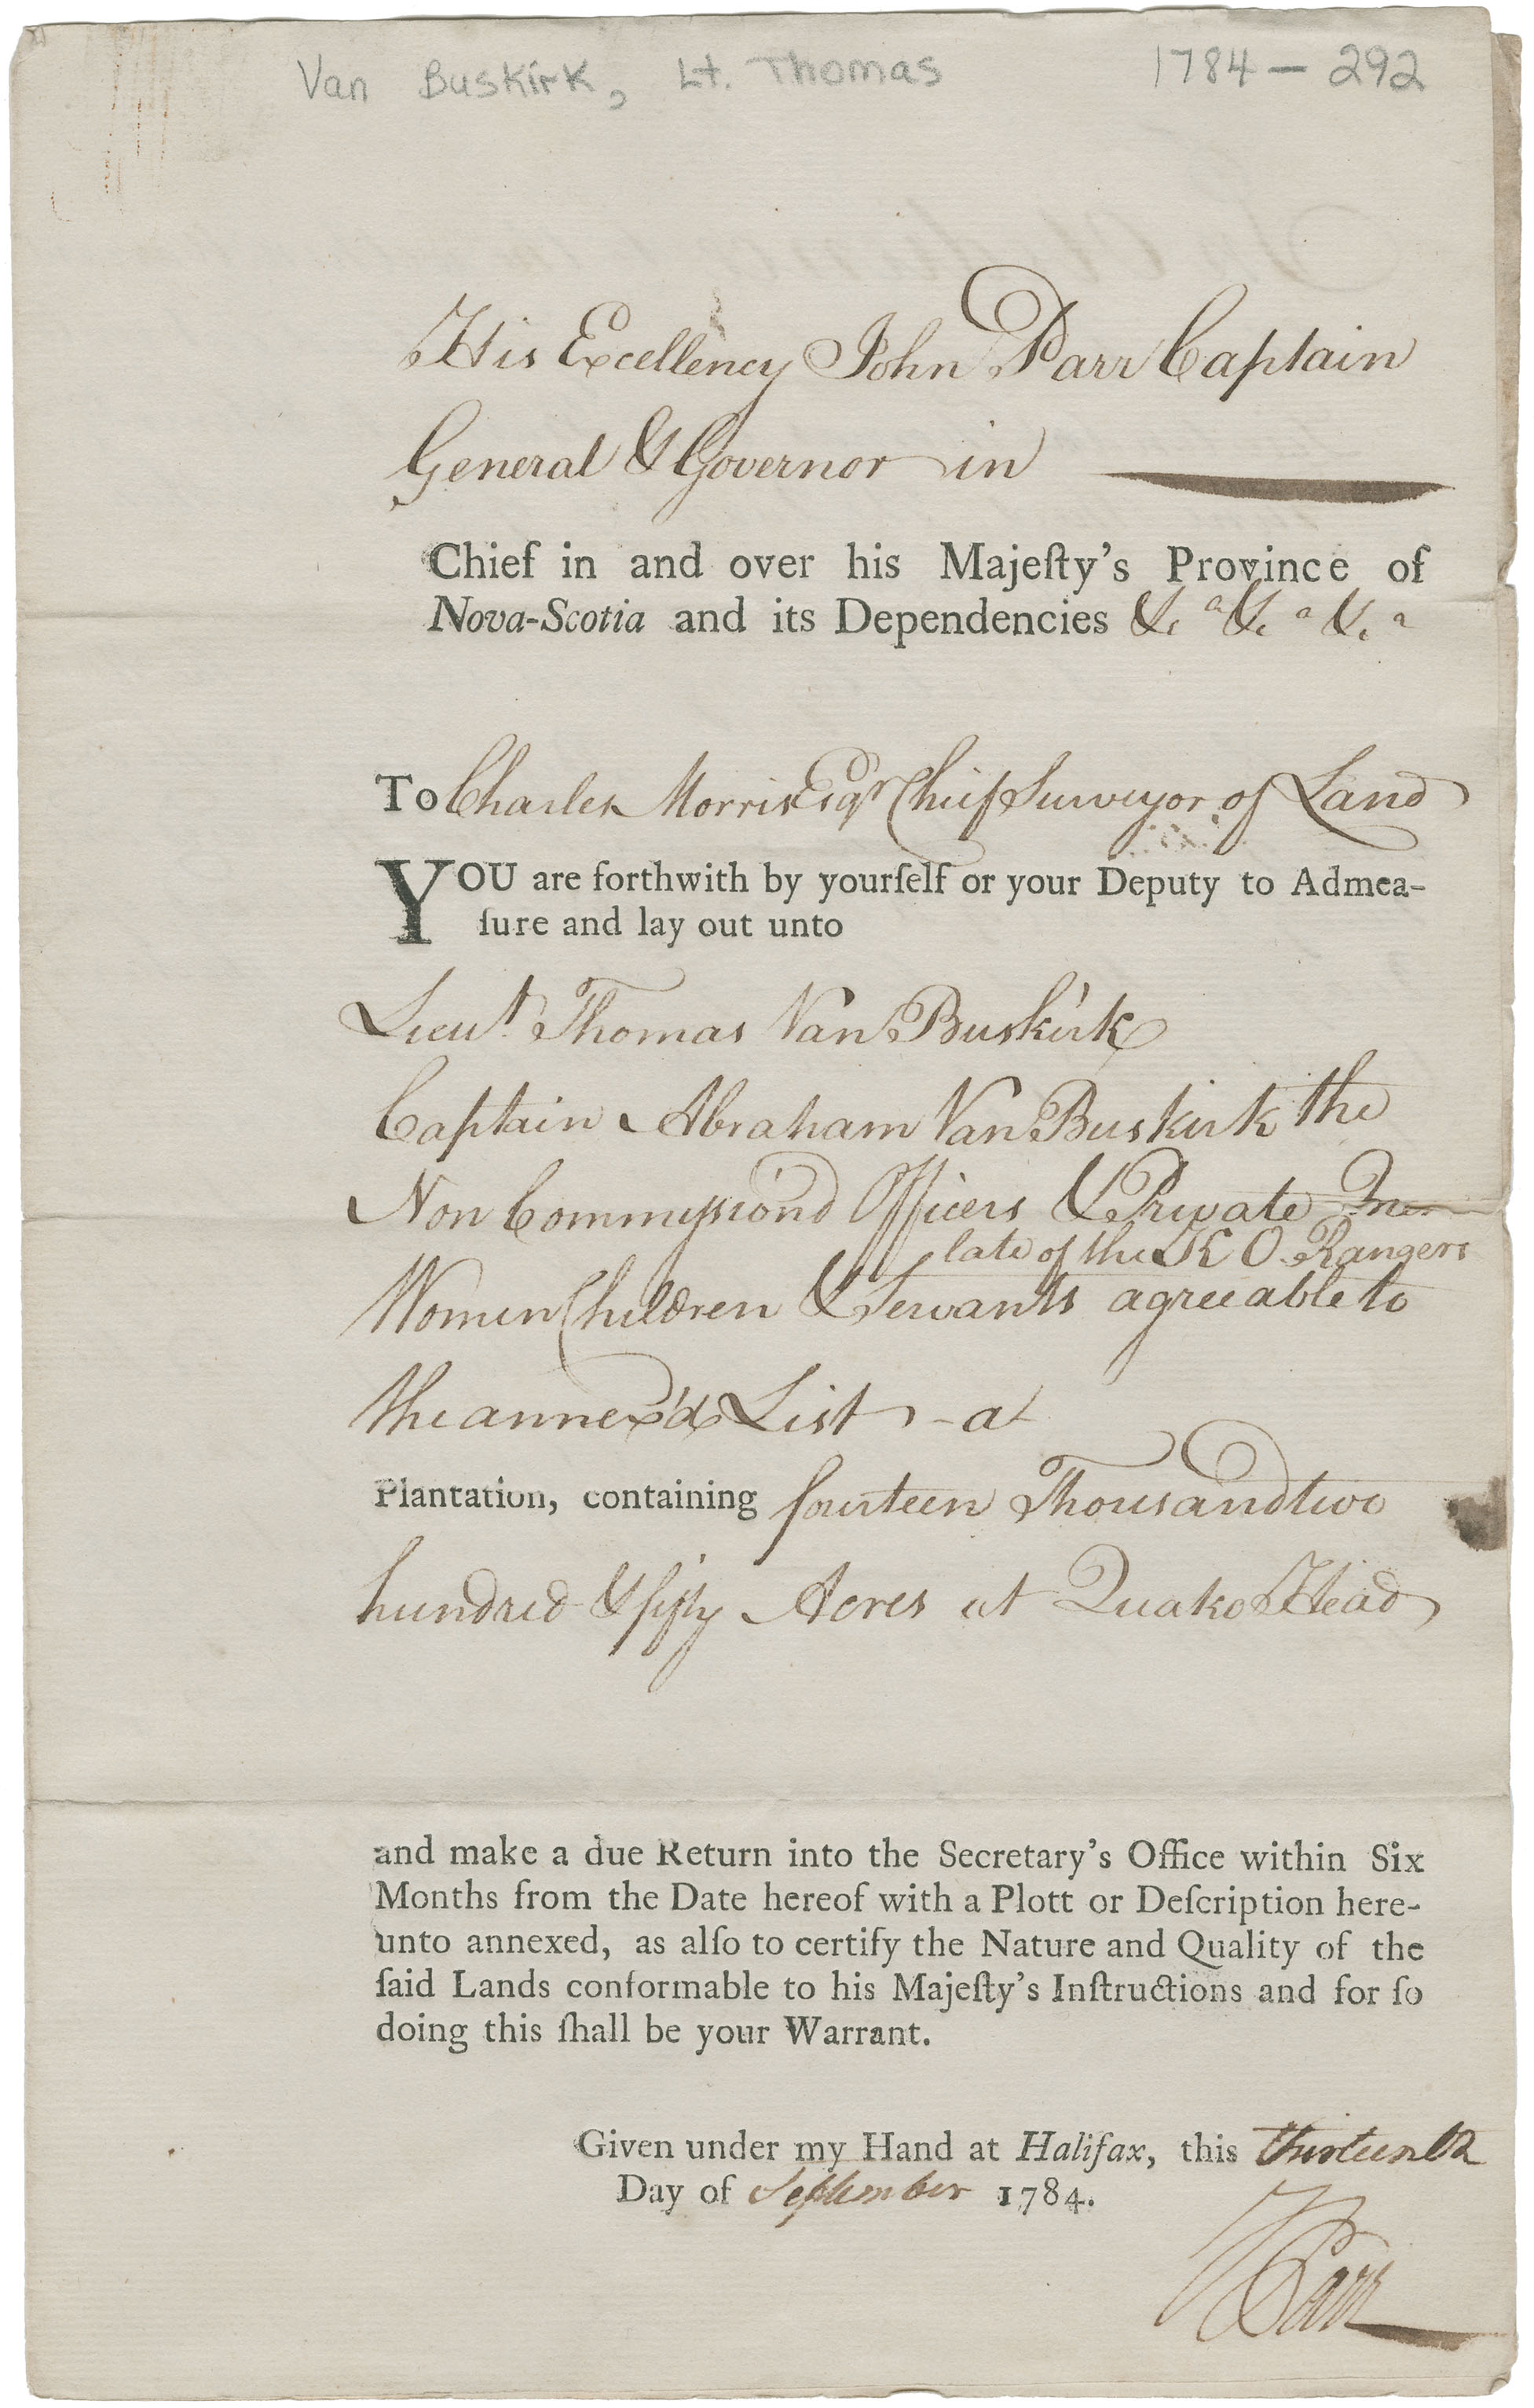 Van Buskirk, Lt. Thomas 1784 — 292
His Excellency John Parr Captain
General & Governor in
Chief in and over his Majeſty's Province of
Nova-Scotia and its Dependencies &c.ª &c.ª &c.ª
To Charles Morris Esqr Chief Surveyor of Land
YOU are forthwith by yourſelf or your Deputy to Admea-
ſure and lay out unto
Lieut. Thomas Van Buskirk
Captain Abraham Van Buskirk the
Non Commission'd Officers & Private Men
late of the K O Rangers
Women Children & Servants agreeable to
the annex'd List - at
Plantation, containing fourteen Thousand two
hundred & fifty Acres at Quako Head
and make a due Return into the Secretary's Office within Six
Months from the Date hereof with a Plott or Deſcription here-
unto annexed, as alſo to certify the Nature and Quality of the
ſaid Lands conformable to his Majeſty's Inſtructions and for ſo
doing this ſhall be your Warrant.
Given under my Hand at Halifax, this thirteenth
Day of September 1784.
J Parr